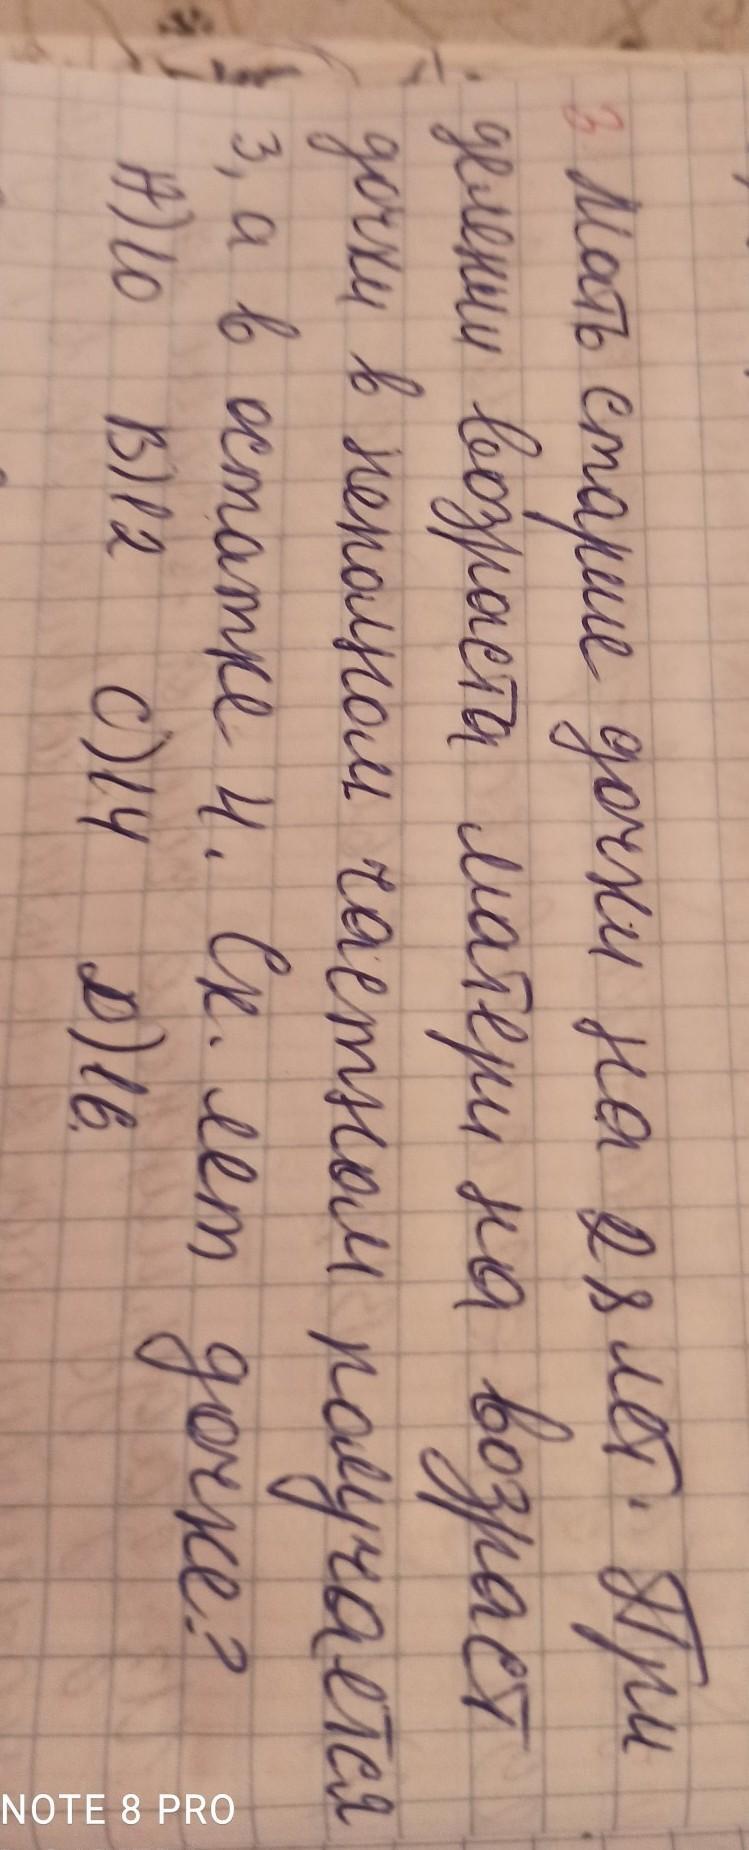 3 Мать старше дочки на 28 лет. При
делении возраста матери на возраст
дочки в неполном частном получается
3, а в остатке 4. Ск. лет дочке?
A) 10 B) 12 C) 14 D) 16
NOTE 8 PRO